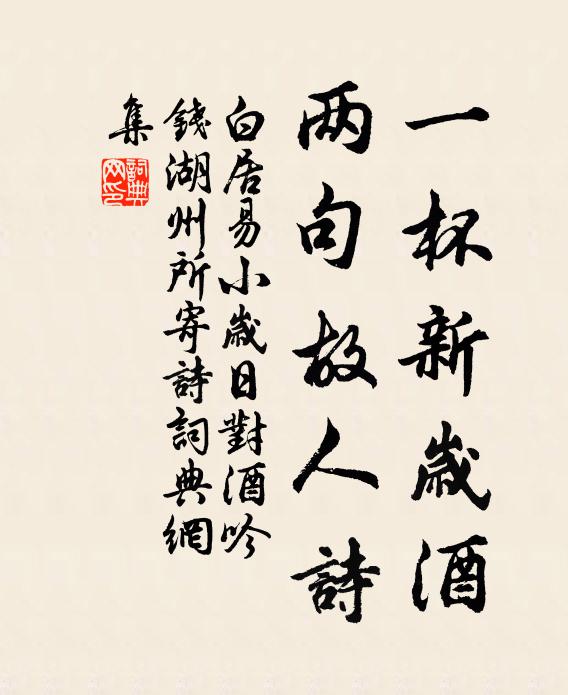 一杯新歲酒
两句故人詩
白居易小歲日對酒吟
錢湖州所寄詩詞典網
集
詞典網印